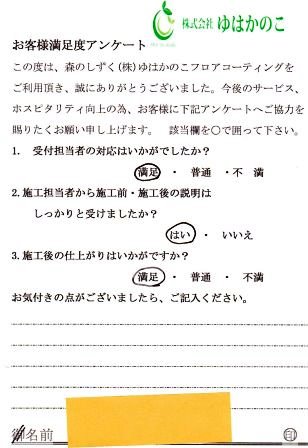 株式会社 ゆはかのこ
お客様満足度アンケート
この度は、森のしずく(株)ゆはかのこフロアコーティングを
ご利用頂き、誠にありがとうございました。今後のサービス、
ホスピタリティ向上の為、お客様に下記アンケートへご協力を
賜りたくお願い申し上げます。 該当欄を○で囲って下さい。
1. 受付担当者の対応はいかがでしたか?
満足 ・ 普通 ・不 満
2.施工担当者から施工前・施工後の説明は
しっかりと受けましたか?
はい ・ いいえ
3.施工後の仕上がりはいかがですか?
満足 ・ 普通 ・ 不満
お気付きの点がございましたら、ご記入ください。
御名前 印